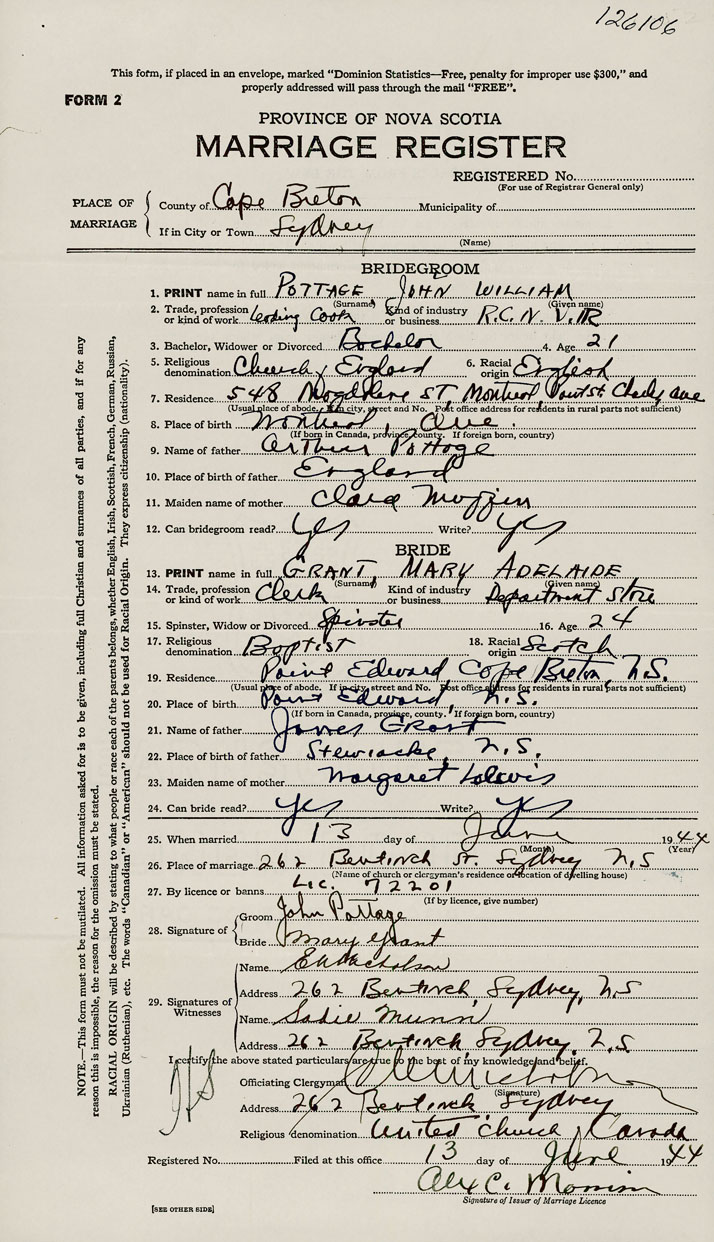 126106
This form, if placed in an envelope, marked “Dominion Statistics—Free, penalty for improper use $300,” and
properly addressed will pass through the mail “FREE”.
FORM 2
PROVINCE OF NOVA SCOTIA
MARRIAGE REGISTER
REGISTERED No.
(For use of Registrar General only)
PLACE OF MARRIAGE
County of Cape Breton Municipality of
If in City or Town Sydney
(Name)
BRIDEGROOM
1. PRINT name in full POTTAGE JOHN WILLIAM
(Surname) (Given name)
2. Trade, profession or kind of work Leading Cook Kind of industry or business R.C.N.V.R
3. Bachelor, Widower or Divorced Bachelor 4. Age 21
5. Religious denomination Church of England 6. Racial origin English
7. Residence 548 Magdalene ST, Montreal, Point St. Charles Que
(Usual place of abode. If in city, street and No. Post office address for residents in rural parts not sufficient)
8. Place of birth Montreal, Que.
(If born in Canada, province, county. If foreign born, country)
9. Name of father Arthur Pottage
10. Place of birth of father England
11. Maiden name of mother Clara
12. Can bridegroom read? Yes Write? Yes
BRIDE
13. PRINT name in full GRANT, MARY ADELAIDE
(Surname) (Given name)
14. Trade, profession or kind of work Clerk Kind of industry or business Department Store
15. Spinster, Widow or Divorced Spinster 16. Age 24
17. Religious denomination Baptist 18. Racial origin Scotch
19. Residence Point Edward, Cape Breton, N.S.
(Usual place of abode. If in city, street and No. Post office address for residents in rural parts not sufficient)
20. Place of birth Point Edward, N.S.
(If born in Canada, province, county. If foreign born, country)
21. Name of father James Grant
22. Place of birth of father Stewiacke, N.S.
23. Maiden name of mother Margaret
24. Can bride read? Yes Write? Yes
25. When married 13 day of June 1944
(Month) (Year)
26. Place of marriage 262 Bentinck St. Sydney N.S
(Name of church or clergyman's residence or location of dwelling house)
27. By licence or banns Lic. 72201
(If by licence, give number)
28. Signature of
Groom John Pottage
Bride Mary Grant
29. Signatures of Witnesses
Name
Address 262 Bentinck, Sydney, N.S
Name Sadie Munn
Address 262 Bentinck Sydney, N.S.
I certify the above stated particulars are true to the best of my knowledge and belief.
Officiating Clergyman
(Signature)
Address 262 Bentinck Sydney
Religious denomination United Church of Canada
Registered No. Filed at this office 13 day of June 1944
Alex C.
Signature of Issuer of Marriage Licence
[SEE OTHER SIDE]
NOTE.—This form must not be mutilated. All information asked for is to be given, including full Christian and surnames of all parties, and if for any
reason this is impossible, the reason for the omission must be stated.
RACIAL ORIGIN will be described by stating to what people or race each of the parents belongs, whether English, Irish, Scottish, French, German, Russian,
Ukrainian (Ruthenian), etc. The words “Canadian” or “American” should not be used for Racial Origin. They express citizenship (nationality).